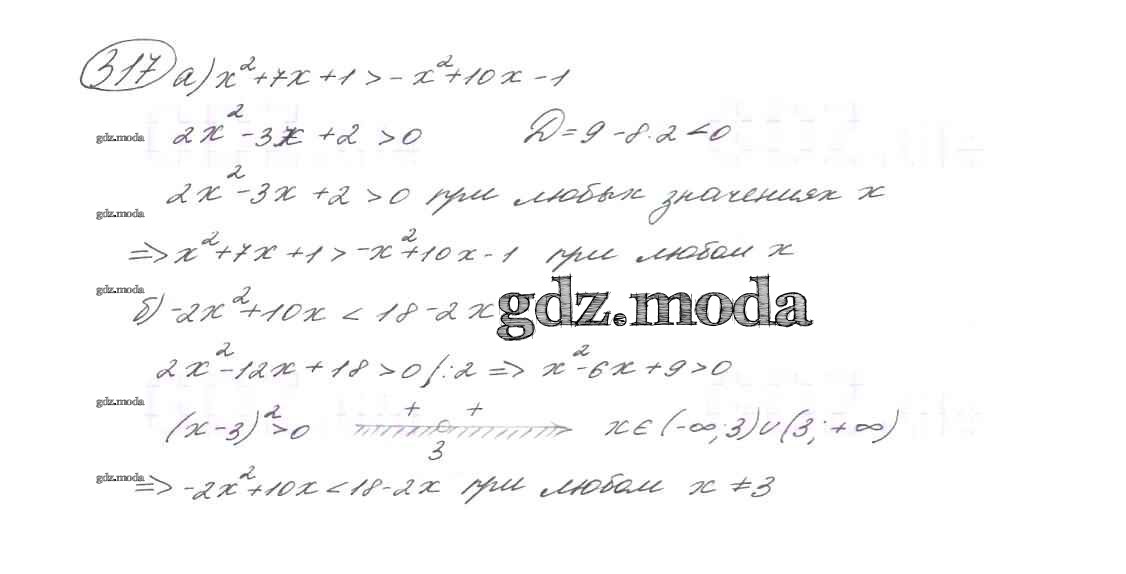 317 а) x²+7x+1>-x²+10x-1
gdz.moda 2x²-3x+2>0 D=9-8·2<0
2x²-3x+2>0 при любых значениях x
gdz.moda
=> x²+7x+1>-x²+10x-1 при любом x
gdz.moda
б) -2x²+10x<18-2x
gdz.moda
2x²-12x+18>0 /:2 => x²-6x+9>0
gdz.moda
(x-3)²>0 + + 3 x∈(-∞;3)∪(3;+∞)
gdz.moda
=> -2x²+10x<18-2x при любом x≠3